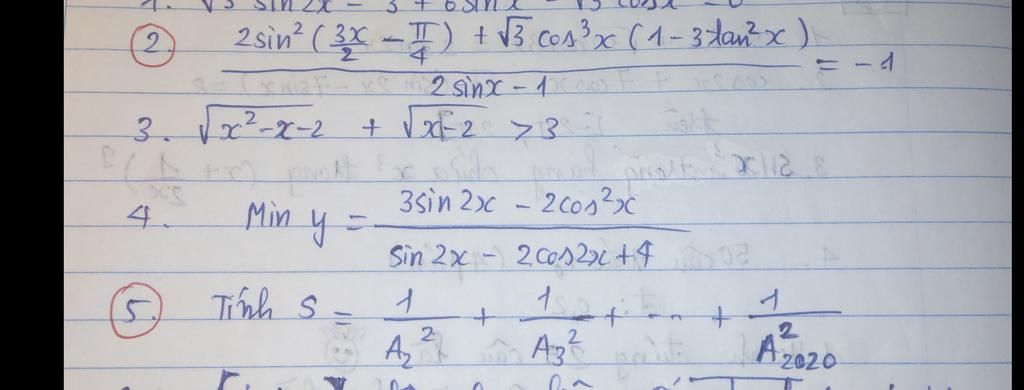 1. √3 sin2x - 3 + 6sinx - √3 cosx = 0
2. (2sin²(3x/2 - π/4) + √3 cos³x (1 - 3tan²x)) / (2sinx - 1) = -1
3. √(x²-x-2) + √(x-2) ≥ 3
4. Min y = (3sin2x - 2cos²x) / (sin2x - 2cos2x + 4)
5. Tính S = 1/A₂² + 1/A₃² + ... + 1/A²₂₀₂₀